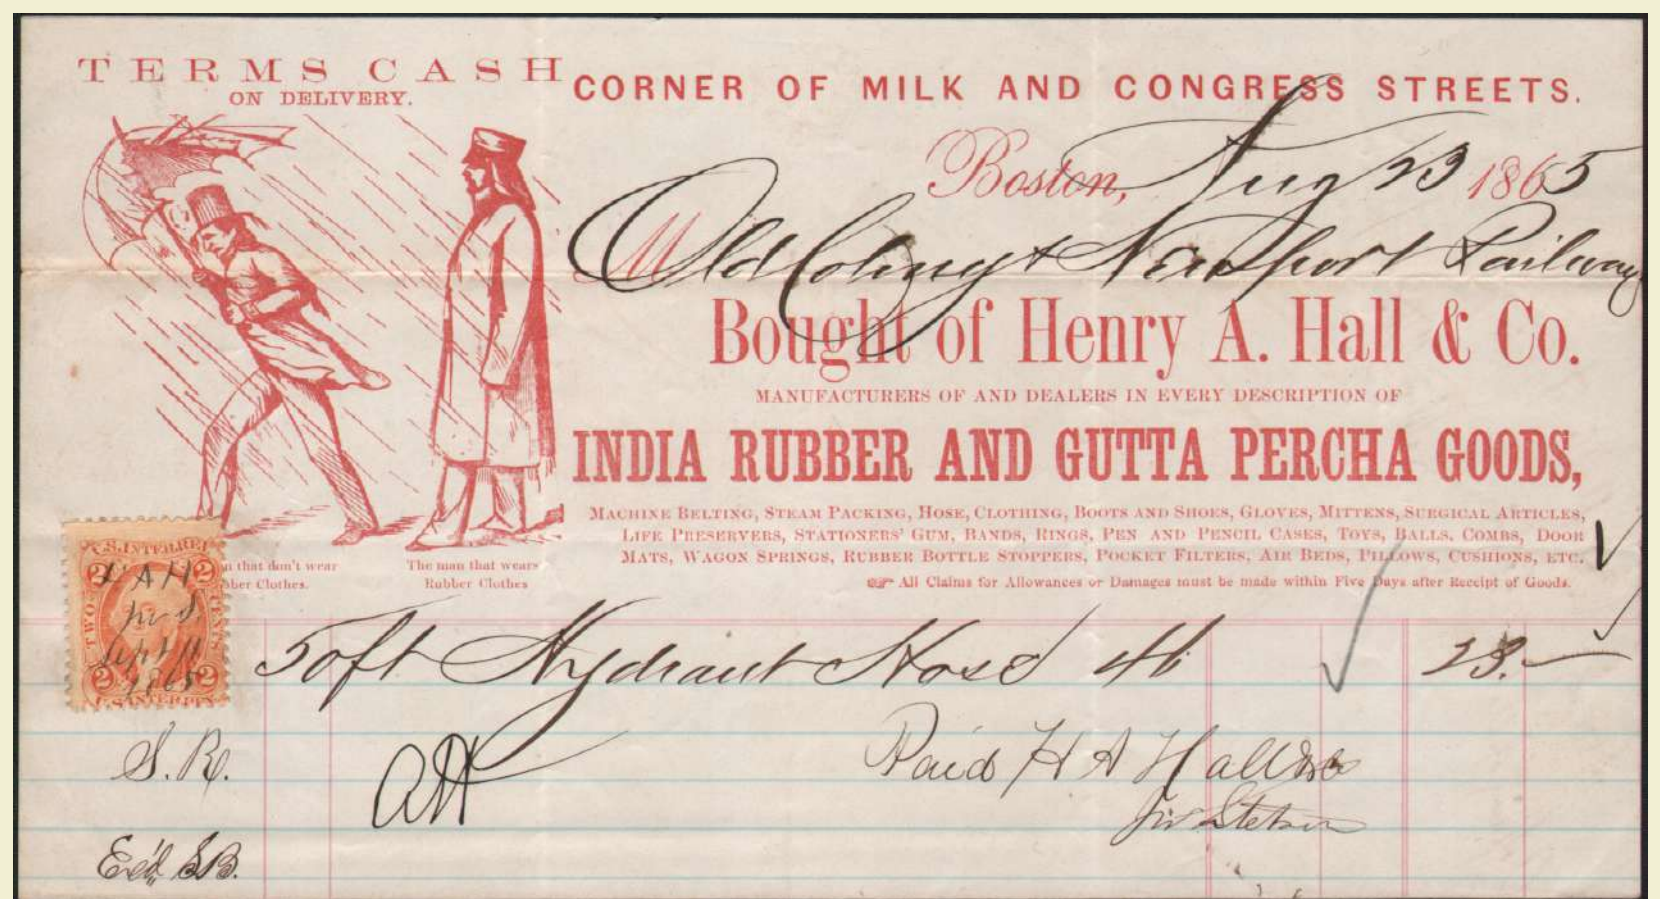 TERMS CASH
ON DELIVERY.
CORNER OF MILK AND CONGRESS STREETS.
Boston, Aug 23 1865
M Old Colony & Newport Railway
Bought of Henry A. Hall & Co.
MANUFACTURERS OF AND DEALERS IN EVERY DESCRIPTION OF
INDIA RUBBER AND GUTTA PERCHA GOODS,
MACHINE BELTING, STEAM PACKING, HOSE, CLOTHING, BOOTS AND SHOES, GLOVES, MITTENS, SURGICAL ARTICLES,
LIFE PRESERVERS, STATIONERS' GUM, BANDS, RINGS, PEN AND PENCIL CASES, TOYS, BALLS, COMBS, DOOR
MATS, WAGON SPRINGS, RUBBER BOTTLE STOPPERS, POCKET FILTERS, AIR BEDS, PILLOWS, CUSHIONS, ETC.
☞ All Claims for Allowances or Damages must be made within Five Days after Receipt of Goods.
n that don't wear
ber Clothes.
The man that wears
Rubber Clothes
U.S. INTER. REV
2 2
TWO CENTS
HAH
Sept 11
1865
2 2
50 ft Hydrant Hose 46 23.—
S. R.
Paid H A Hall & Co
Stetson
Ex'd, S.B.